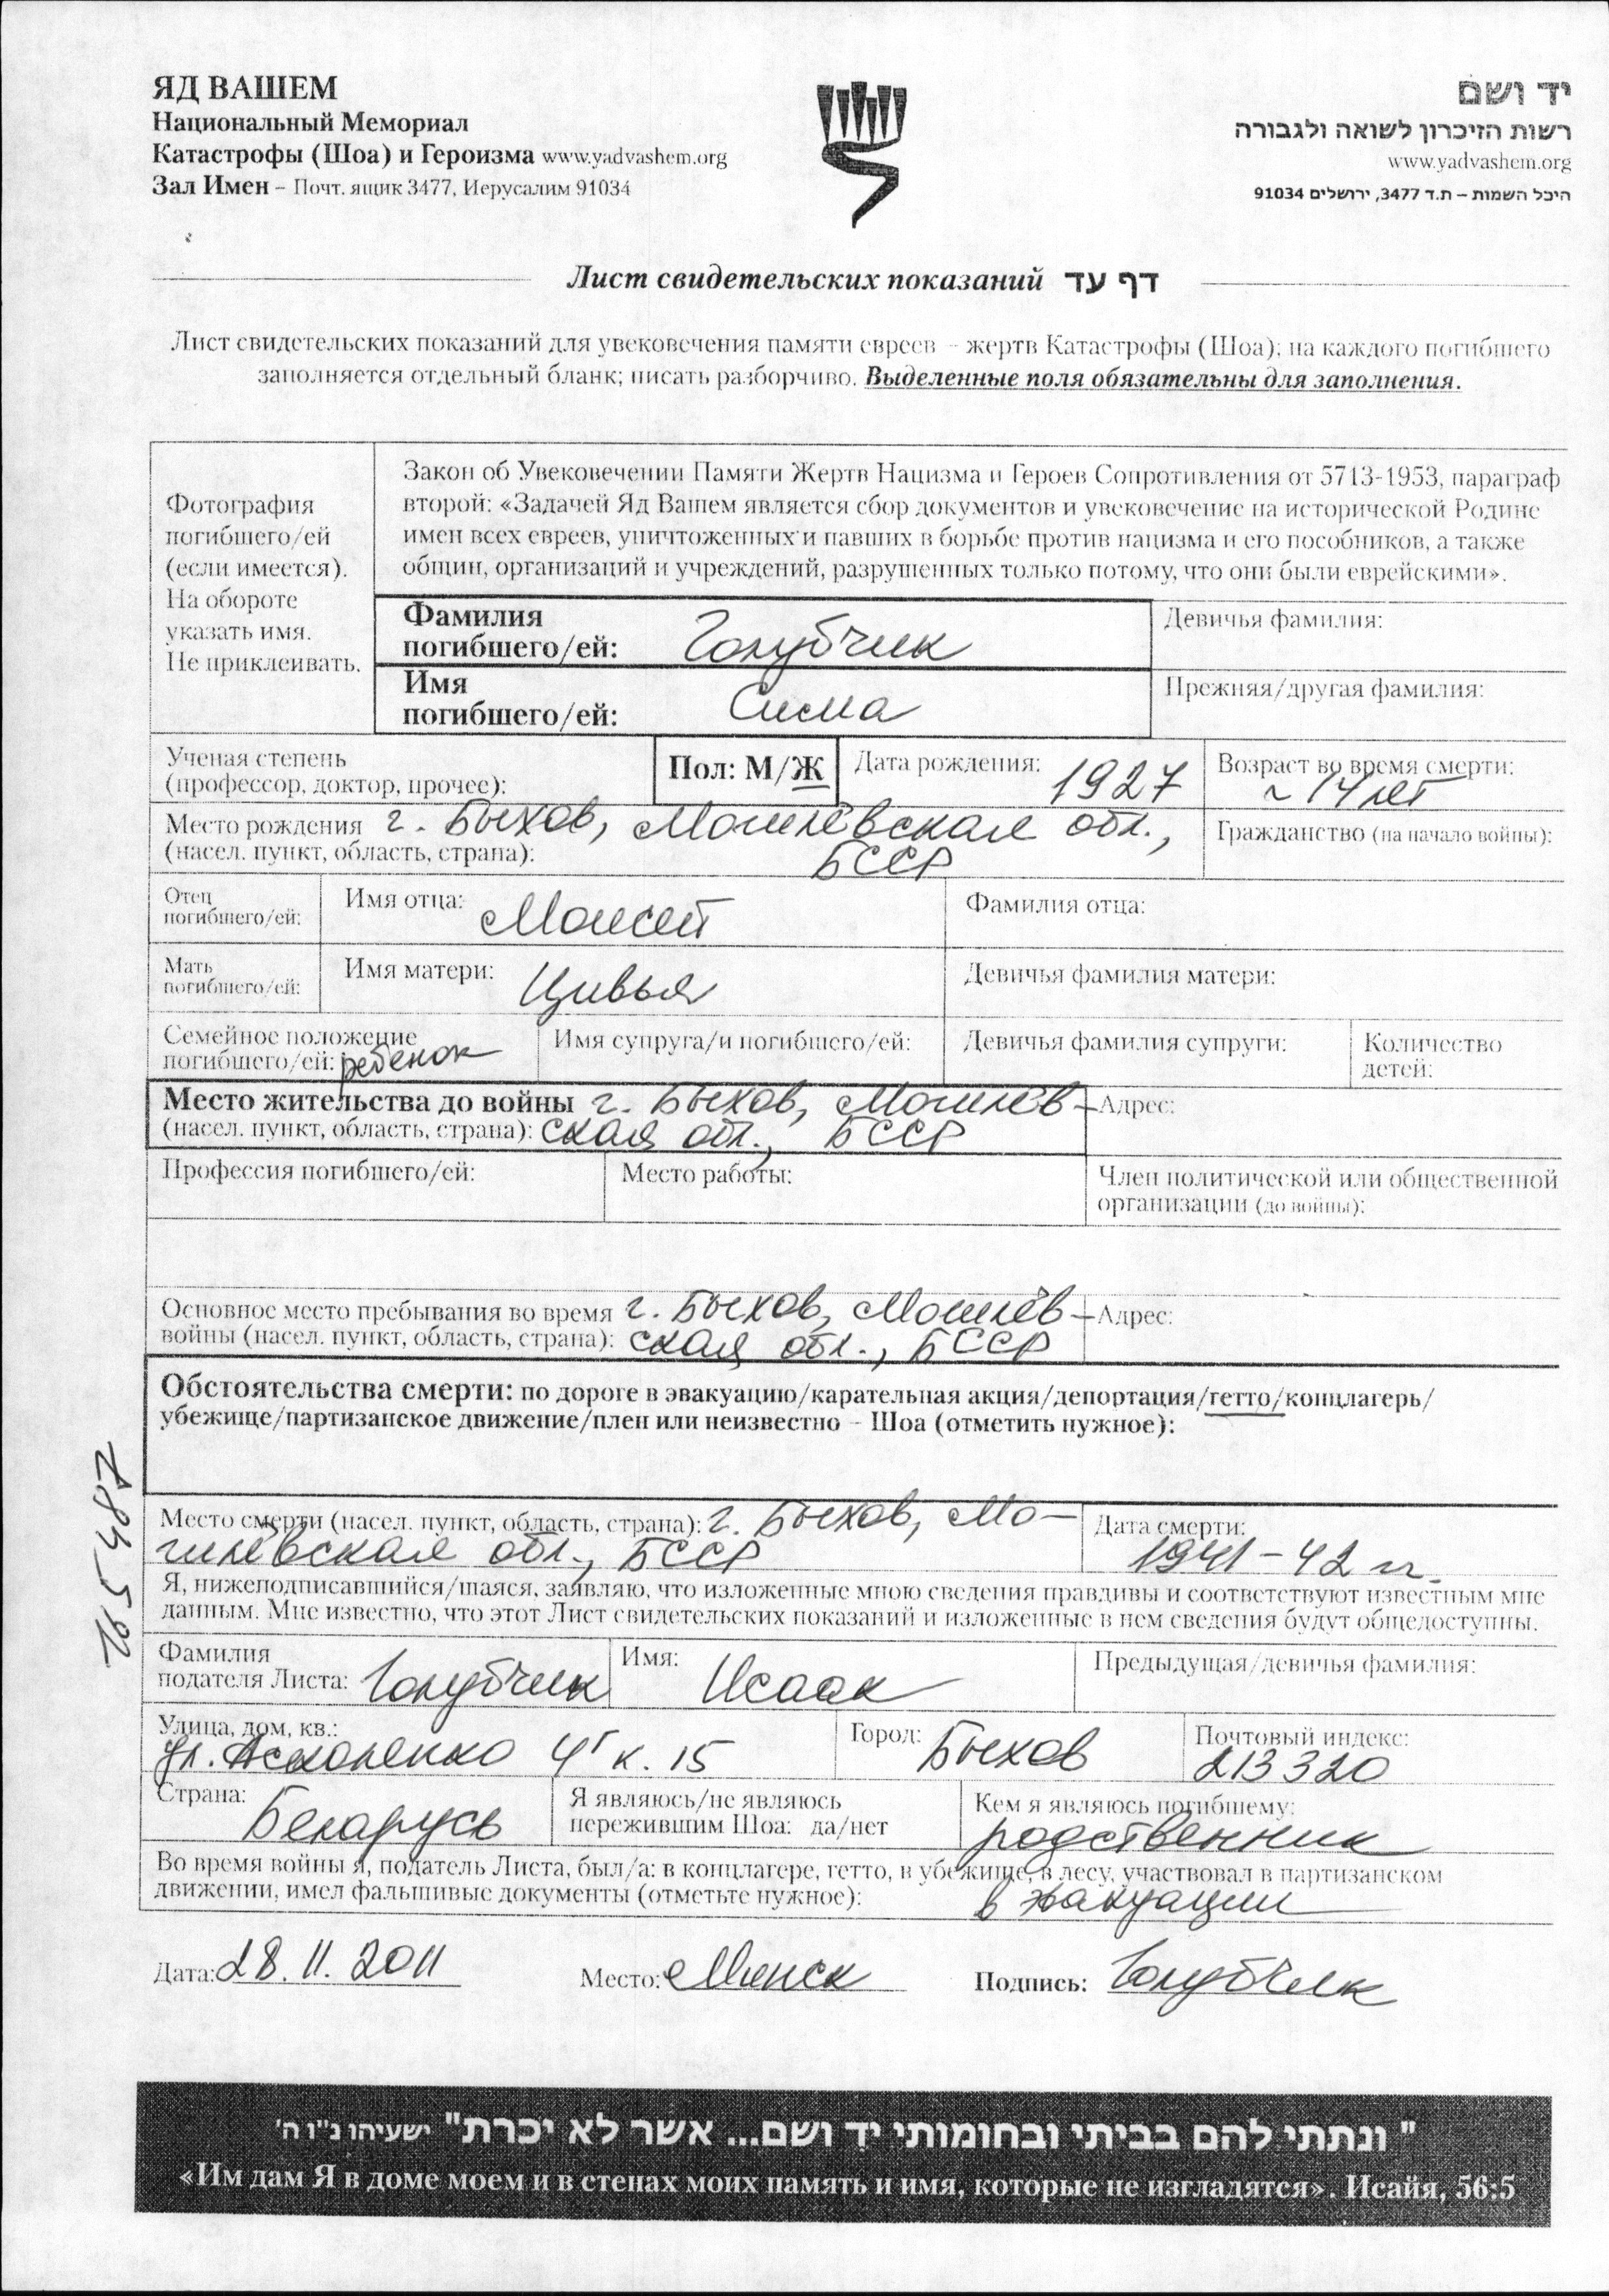 ЯД ВАШЕМ
Национальный Мемориал
Катастрофы (Шоа) и Героизма www.yadvashem.org
Зал Имен – Почт. ящик 3477, Иерусалим 91034
יד ושם
רשות הזיכרון לשואה ולגבורה
www.yadvashem.org
היכל השמות – ת.ד 3477, ירושלים 91034
Лист свидетельских показаний דף עד
Лист свидетельских показаний для увековечения памяти евреев – жертв Катастрофы (Шоа); на каждого погибшего
заполняется отдельный бланк; писать разборчиво. Выделенные поля обязательны для заполнения.
Фотография
погибшего/ей
(если имеется).
На обороте
указать имя.
Не приклеивать.
Закон об Увековечении Памяти Жертв Нацизма и Героев Сопротивления от 5713-1953, параграф
второй: «Задачей Яд Вашем является сбор документов и увековечение на исторической Родине
имен всех евреев, уничтоженных и павших в борьбе против нацизма и его пособников, а также
общин, организаций и учреждений, разрушенных только потому, что они были еврейскими».
Фамилия
погибшего/ей: Голубчик
Девичья фамилия:
Имя
погибшего/ей: Сима
Прежняя/другая фамилия:
Ученая степень
(профессор, доктор, прочее):
Пол: М/Ж
Дата рождения: 1927
Возраст во время смерти:
~ 14 лет
Место рождения г. Быхов, Могилёвская обл.,
(насел. пункт, область, страна): БССР
Гражданство (на начало войны):
Отец
погибшего/ей:
Имя отца: Моисей
Фамилия отца:
Мать
погибшего/ей:
Имя матери: Цивья
Девичья фамилия матери:
Семейное положение
погибшего/ей: ребенок
Имя супруга/и погибшего/ей:
Девичья фамилия супруги:
Количество
детей:
Место жительства до войны г. Быхов, Могилёв-
(насел. пункт, область, страна): ская обл., БССР
Адрес:
Профессия погибшего/ей:
Место работы:
Член политической или общественной
организации (до войны):
Основное место пребывания во время г. Быхов, Могилёв-
войны (насел. пункт, область, страна): ская обл., БССР
Адрес:
Обстоятельства смерти: по дороге в эвакуацию/карательная акция/депортация/гетто/концлагерь/
убежище/партизанское движение/плен или неизвестно – Шоа (отметить нужное):
Место смерти (насел. пункт, область, страна): г. Быхов, Мо-
гилёвская обл., БССР
Дата смерти:
1941-42 гг.
Я, нижеподписавшийся/шаяся, заявляю, что изложенные мною сведения правдивы и соответствуют известным мне
данным. Мне известно, что этот Лист свидетельских показаний и изложенные в нем сведения будут общедоступны.
Фамилия
подателя Листа: Голубчик
Имя: Исаак
Предыдущая/девичья фамилия:
Улица, дом, кв.:
ул. Асмоленко 4г к. 15
Город: Быхов
Почтовый индекс:
213320
Страна: Беларусь
Я являюсь/не являюсь
пережившим Шоа: да/нет
Кем я являюсь погибшему:
родственник
Во время войны я, податель Листа, был/а: в концлагере, гетто, в убежище, в лесу, участвовал в партизанском
движении, имел фальшивые документы (отметьте нужное): в эвакуации
Дата: 28.11.2011
Место: Минск
Подпись: Голубчик
" ונתתי להם בביתי ובחומותי יד ושם... אשר לא יכרת" ישעיהו נ"ו ה'
«Им дам Я в доме моем и в стенах моих память и имя, которые не изгладятся». Исайя, 56:5